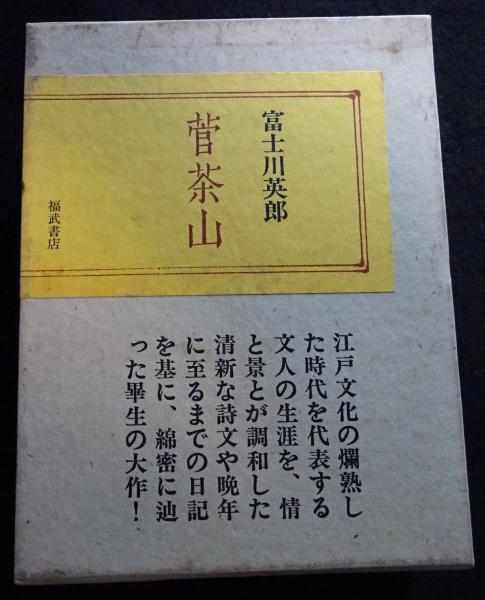 富士川英郎
菅茶山
福武書店
江戸文化の爛熟し
た時代を代表する
文人の生涯を、情
と景とが調和した
清新な詩文や晩年
に至るまでの日記
を基に、綿密に辿
った畢生の大作！